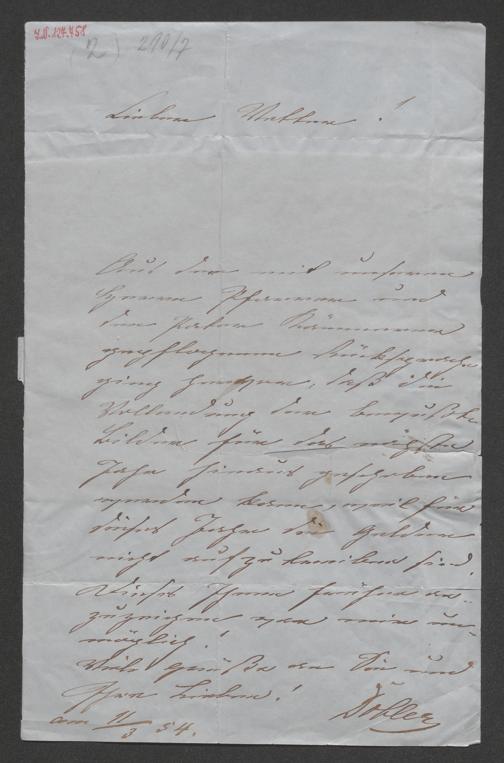 I.N. 124.458
(2) 290/7
Lieber Vetter!
Aus der mit unserem
Herrn Pfarrer und
dem Pater Kämmerer
gepflogenen Rücksprache
ging hervor, daß die
Vollendung der bewußten
Bilder für das nächste
Jahr hinaus geschoben
werden kann, weil für
dieses Jahr die Gelder
nicht aufzutreiben sind.
Dieses Ihnen früher an-
zuzeigen war mir un-
möglich!
Viele Grüße an Sie und
Ihre Lieben!
Döbler
am 11/3 54.